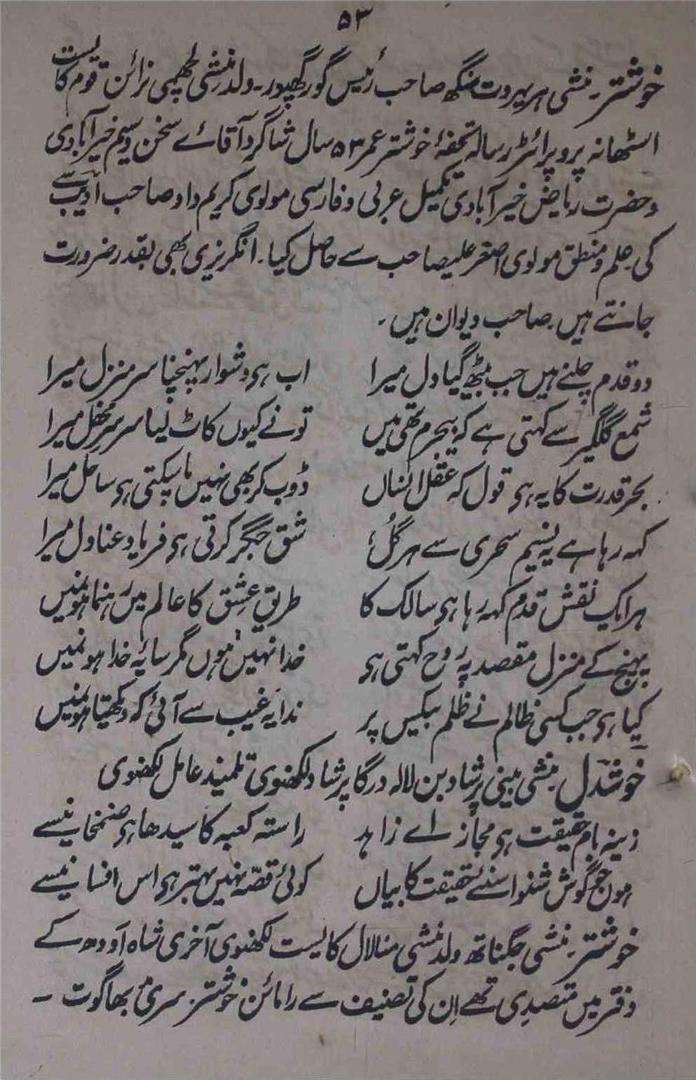 ۵۳
خوشتر۔ منشی ہر بہروت سنگھ صاحب رئیس گورکھپور۔ ولد منشی لچھمی نرائن قوم کایست
استھانہ پروپرائٹر رسالہ تحفۂ خوشتر عمر ۵۳ سال شاگرد آقائے سخن وسیم خیرآبادی
و حضرت ریاض خیرآبادی تکمیل عربی و فارسی مولوی کریم داد صاحب ادیب سے
کی علم و منطق مولوی اصغر علیصاحب سے حاصل کیا۔ انگریزی بھی بقدر ضرورت
جانتے ہیں۔ صاحب دیوان ہیں۔
دو قدم چلنے ہیں جب بیٹھ گیا دل میرا اب ہو دشوار پہنچنا سر منزل میرا
شمع گلگیر سے کہتی ہے کہ بیجرم تھی میں تونے کیوں کاٹ لیا سر سر محفل میرا
بحر قدرت کا یہ ہو قول کہ عقل انساں ڈوب کر بھی نہیں پاسکتی ہو ساحل میرا
کہہ رہا ہے یہ نسیم سحری سے ہر گل شق جگر کرتی ہو فریاد عنادل میرا
ہر ایک نقش قدم کہہ رہا ہو سالک کا طریق عشق کا عالم میں رہنما ہونمیں
پہنچ کے منزل مقصد پہ روح کہتی ہو خدا نہیں ہوں مگر سایۂ خدا ہونمیں
کیا ہو جب کسی ظالم نے ظلم بیکس پر ندا یہ غیب سے آئی کہ دیکھتا ہونمیں
خوشدل۔ منشی بینی پرشاد بن لالہ درگا پرشاد لکھنوی تلمیذ عامل لکھنوی
زینہ بام حقیقت ہو مجاز اے زاہد راستہ کعبہ کا سیدھا ہو صنمخانیسے
ہوں جو گوش شنوا سنئے حقیقت کا بیاں کوئی قصہ نہیں بہتر ہو اس افسانیسے
خوشتر۔ منشی جگناتھ ولد منشی منالال کایست لکھنوی آخری شاہ اودھ کے
دفتر میں متصدی تھے ان کی تصنیف سے رامائن خوشتر۔ سری بھاگوت ۔